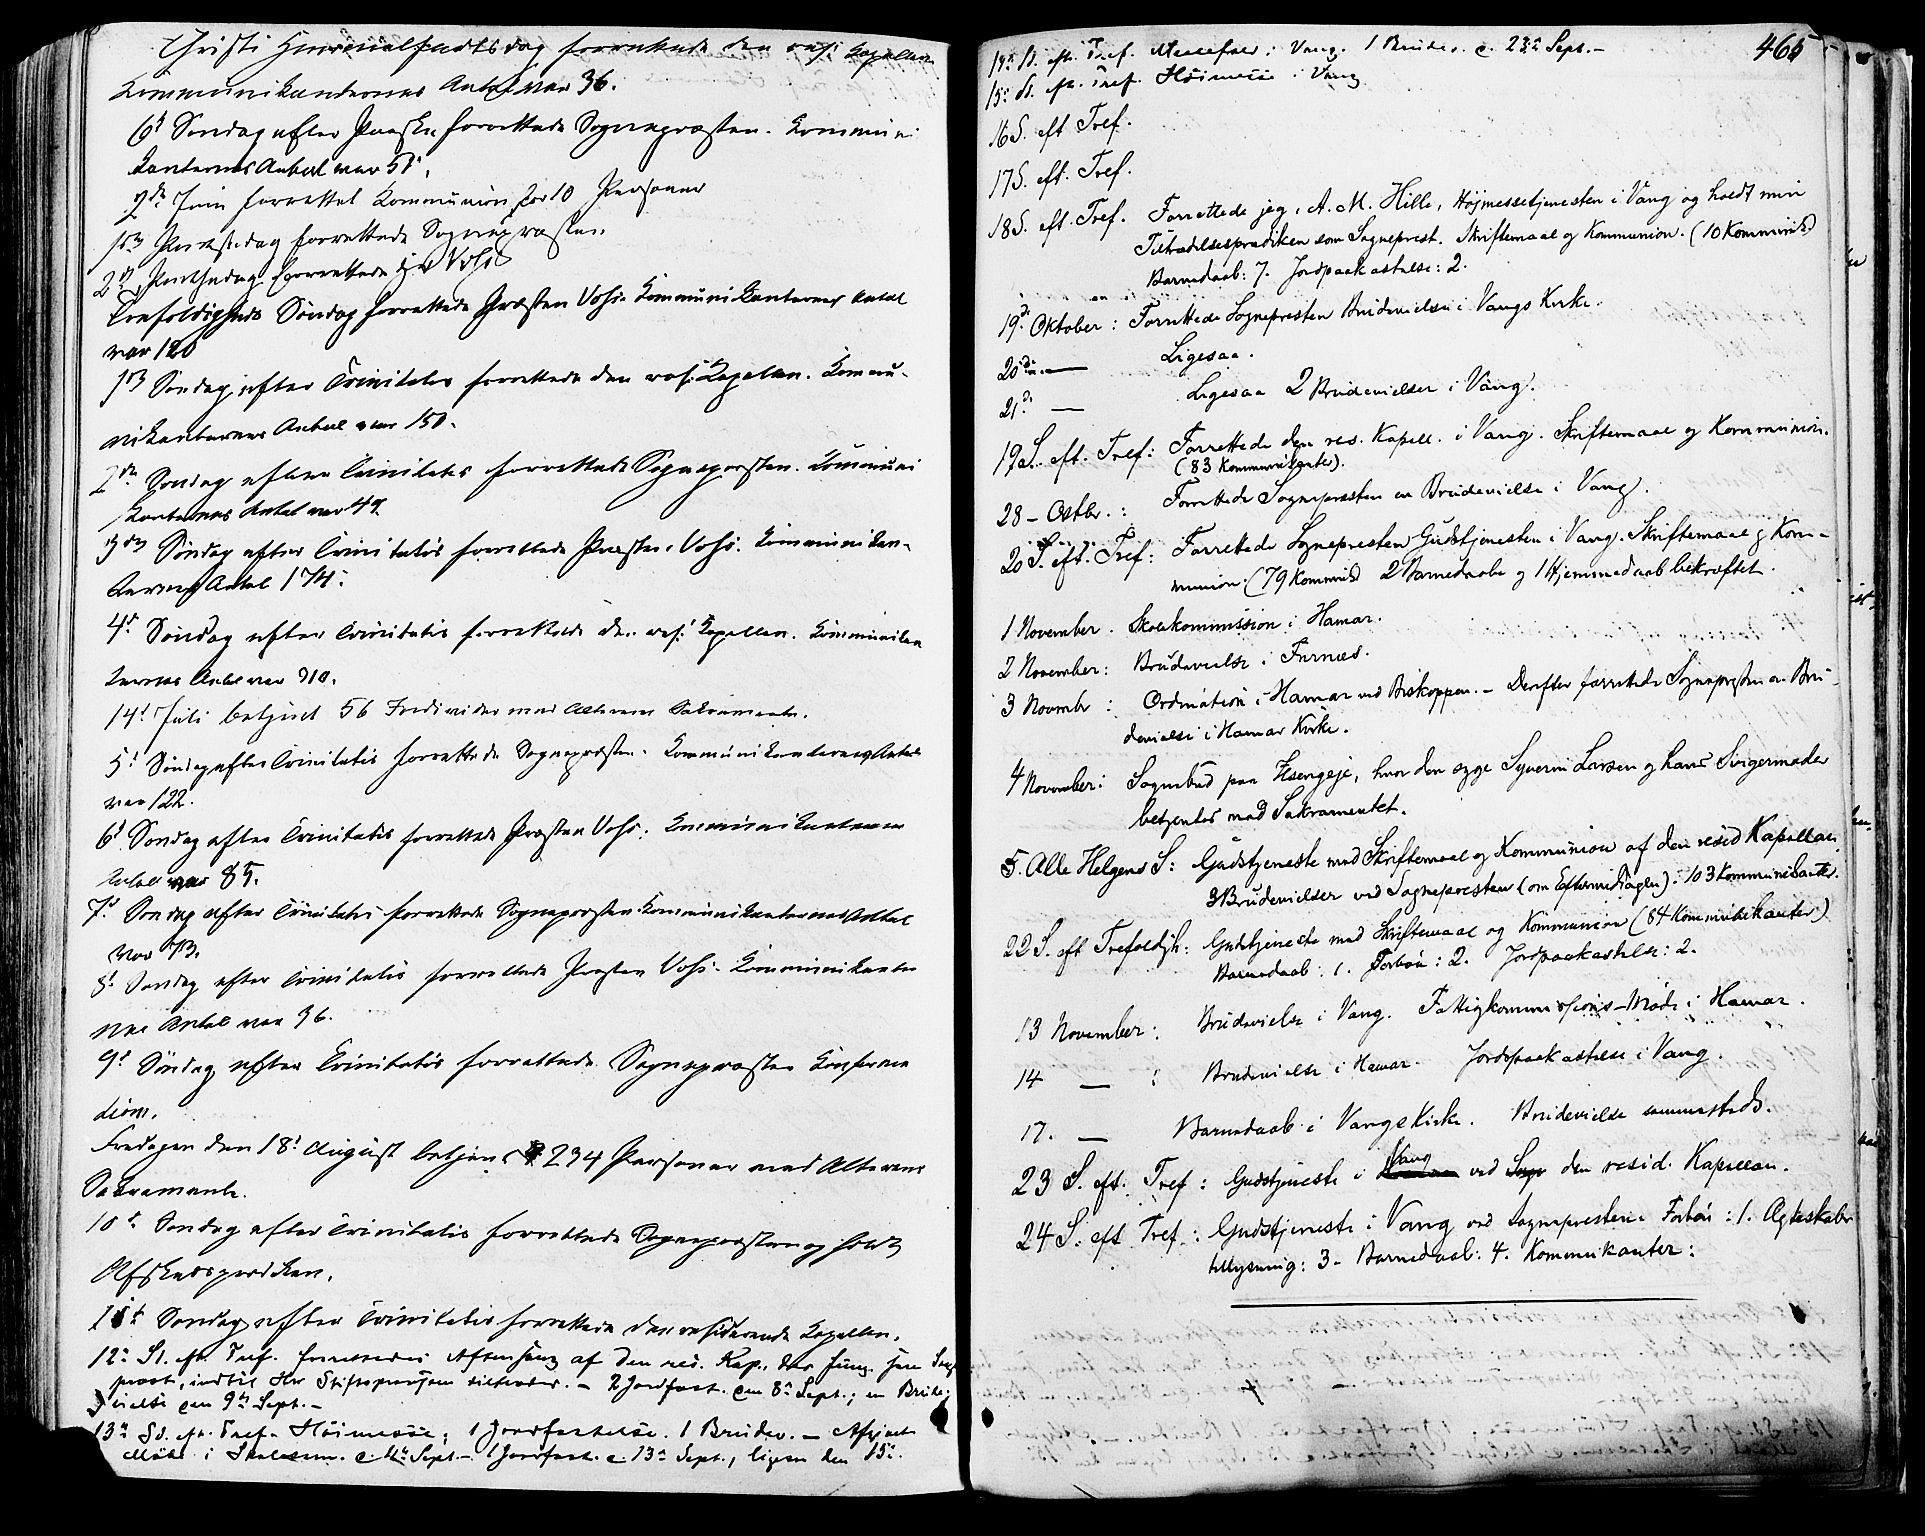 Christi Himmelfartsdag forrettede den resi. Capellan
Kommunikanternes Antal var 36.
6t Søndag efter Paaske forrettede Sognepræsten. Kommuni-
kanternes Antal var 51.
2den Juni forrettet Kommunion for 10 Personer
1ste Pintsedag forrettede Sognepræsten.
2den Pintsedag forrettede Hr Vohs
Trefoldigheds Søndag forrettede Præsten Vohs. Kommunikanternes Antal
var 120
1ste Søndag efter Trinitatis forrettede den resi. Kapellan. Kommu-
nikanternes Antal var 150.
2den Søndag efter Trinitatis forrettede Sognepræsten. Kommuni
kanternes Antal var 49
3die Søndag efter Trinitatis forrettede Præsten Vohs. Kommunikan-
ternes Antal 174.
4d Søndag efter Trinitatis forrettede den resi. Capellan. Kommunikan
ternes Antal var 310.
14d Juli betjent 56 Individer med Alterens Sakramente.
5t Søndag efter Trinitatis forrettede Sognepræsten. Kommunikanternes Antal
var 122.
6t Søndag efter Trinitatis forrettede Præsten Vohs. Kommunikanternes
Antal var 85.
7d Søndag efter Trinitatis forrettede Sognepræsten. Kommunikanternes Antal
var 73.
8d Søndag efter Trinitatis forrettede Præsten Vohs. Kommunikanter
nes Antal var 36.
9d Søndag efter Trinitatis forrettede Sognepræsten Konferma
tion.
Fredagen den 18d August betjent 234 Personer med Alterens
Sakramente.
10d Søndag efter Trinitatis forrettede Sognepræsten og holdt
Afskedsprediken.
11te Søndag efter Trinitatis forrettede den residerende Capellan.
12te S. eft. Tref. forrettedes Aftensang af den res. Kap., der fung. som Sogne
prest, indtil Hr Stiftsprovsten tiltræder. - 2 Jordfæst. den 8de Sept.; en Brude-
vielse den 9de Sept. -
13de Sd. eft. Tref. Høimesse; 1 Jordfæstelse. 1 Brudev. -
Møde i Sept. - 1 Jordfæst. d. 13de Sept., ligesaa den 15de.
465
14de S. eft. Tref. Messefald i Vang. 1 Brudev. d. 23de Sept. -
15de S. eft. Tref. Høimesse i Vang
16 S. eft Tref.
17 S. eft. Tref.
18 S. eft. Tref. Forrettede jeg, A. M. Hille, Højmessetjenesten i Vang og holdt min
Tiltrædelsesprædiken som Sogneprest. Skriftemaal og Kommunion. (10 Kommunik.)
Barnedaab: 7. Jordpaakastelse: 2.
19de Oktober: Forrettede Sognepresten en Brudevielse i Vangs Kirke.
20de — Ligesaa.
21de — Ligesaa 2 Brudevielser i Vang.
19 S. eft. Tref: Forrettede den res. Kapell. i Vang. Skriftemaal og Kommunion.
(83 Kommunikanter).
28 - Octbr.: Forrettede Sognepræsten en Brudevielse i Vang.
20 S. eft. Tref: Forrettede Sognepresten Gudstjenesten i Vang. Skriftemaal og Kom-
munion. (79 Kommunik) 2 Barnedaabe og 1 Hjemmedaab bekræftet.
1 November. Skolekommission i Hamar.
2 November: Brudevielse i Furnæs.
3 Novembr: Ordination i Hamar ved Biskoppen. - Derefter forrettede Sognepresten en Bru-
devielse i Hamar Kirke.
4 November: Sognebud paa Hsengeje, hvor den syge Syverin Larsen og hans Svigermoder
betjentes med Sakramentet.
5. Alle Helgens S: Gudstjeneste med Skriftemaal og Kommunion af den resid Kapellan.
3 Brudevielser ved Sognepresten (om Eftermiddagen). 103 Kommunikanter.
22 S. eft Trefoldigh: Gudstjeneste med Skriftemaal og Kommunion (84 Kommunikanter)
Barnedaab: 1. Forbøn: 2. Jordpaakastelse: 2.
13 November: Brudevielse i Vang. Fattigkommissions-Møde i Hamar.
14 — : Brudevielse i Hamar. Jordpaakastelse i Vang.
17. — Barnedaab i Vangs Kirke. Brudevielse sammesteds.
23 S. eft. Tref: Gudstjeneste i Vang ved Sogn den resid. Kapellan.
24 S. eft Tref.: Gudstjeneste i Vang ved Sognepresten. Forbøn: 1. Ægteskabs
tillysning: 3 - Barnedaab: 4. Kommunikanter: